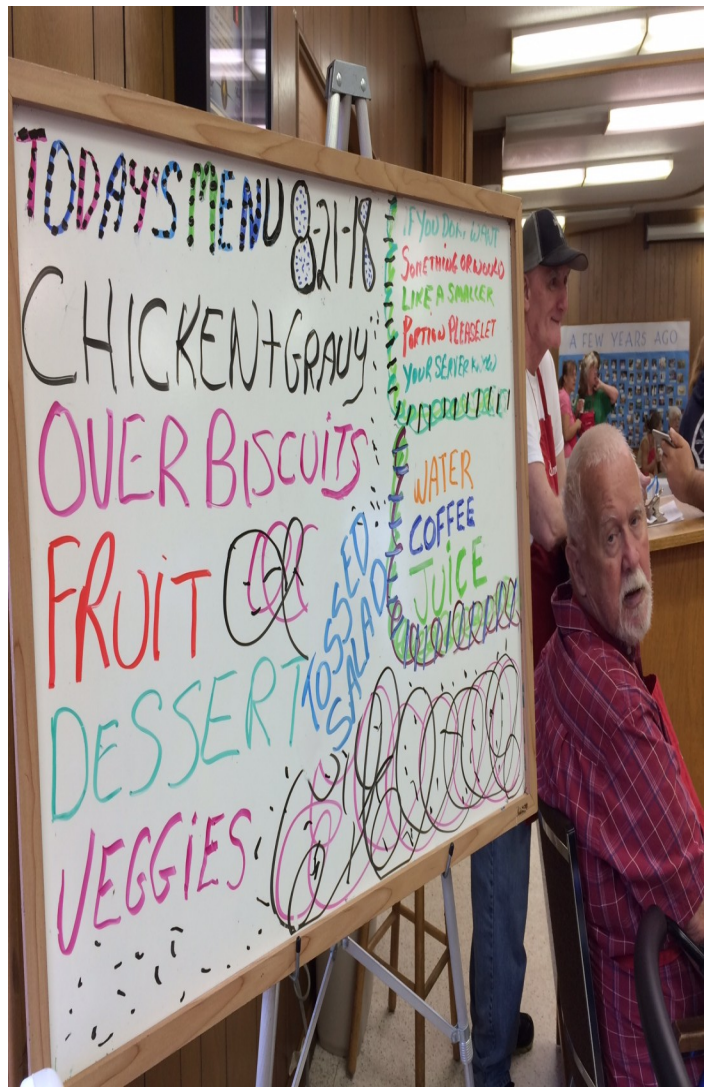 TODAY'S MENU 8-21-18
CHICKEN + GRAVY
OVER BISCUITS
FRUIT
DESSERT
VEGGIES
TOSSED
SALAD
IF YOU DON, WANT
SOMETHING OR WOULD
LIKE A SMALLER
PORTION PLEASE LET
YOUR SERVER KNOW
WATER
COFFEE
JUICE
A FEW YEARS AGO